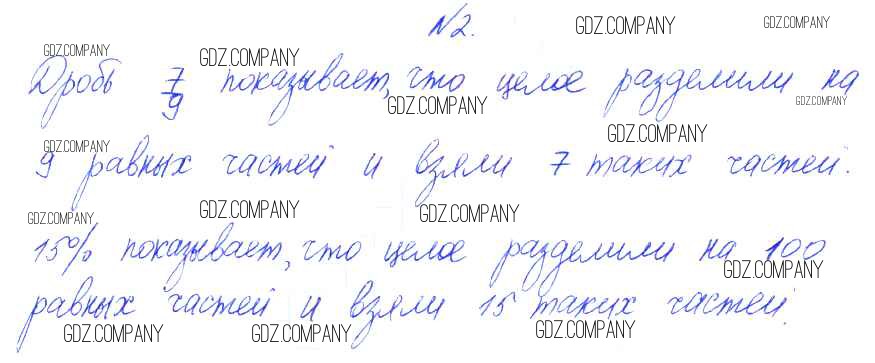 №2.
GDZ.COMPANY GDZ.COMPANY
GDZ.COMPANY GDZ.COMPANY
Дробь 7/9 показывает, что целое разделили на
GDZ.COMPANY GDZ.COMPANY
GDZ.COMPANY GDZ.COMPANY
9 равных частей и взяли 7 таких частей.
GDZ.COMPANY GDZ.COMPANY GDZ.COMPANY
15% показывает, что целое разделили на 100
GDZ.COMPANY
равных частей и взяли 15 таких частей.
GDZ.COMPANY GDZ.COMPANY GDZ.COMPANY